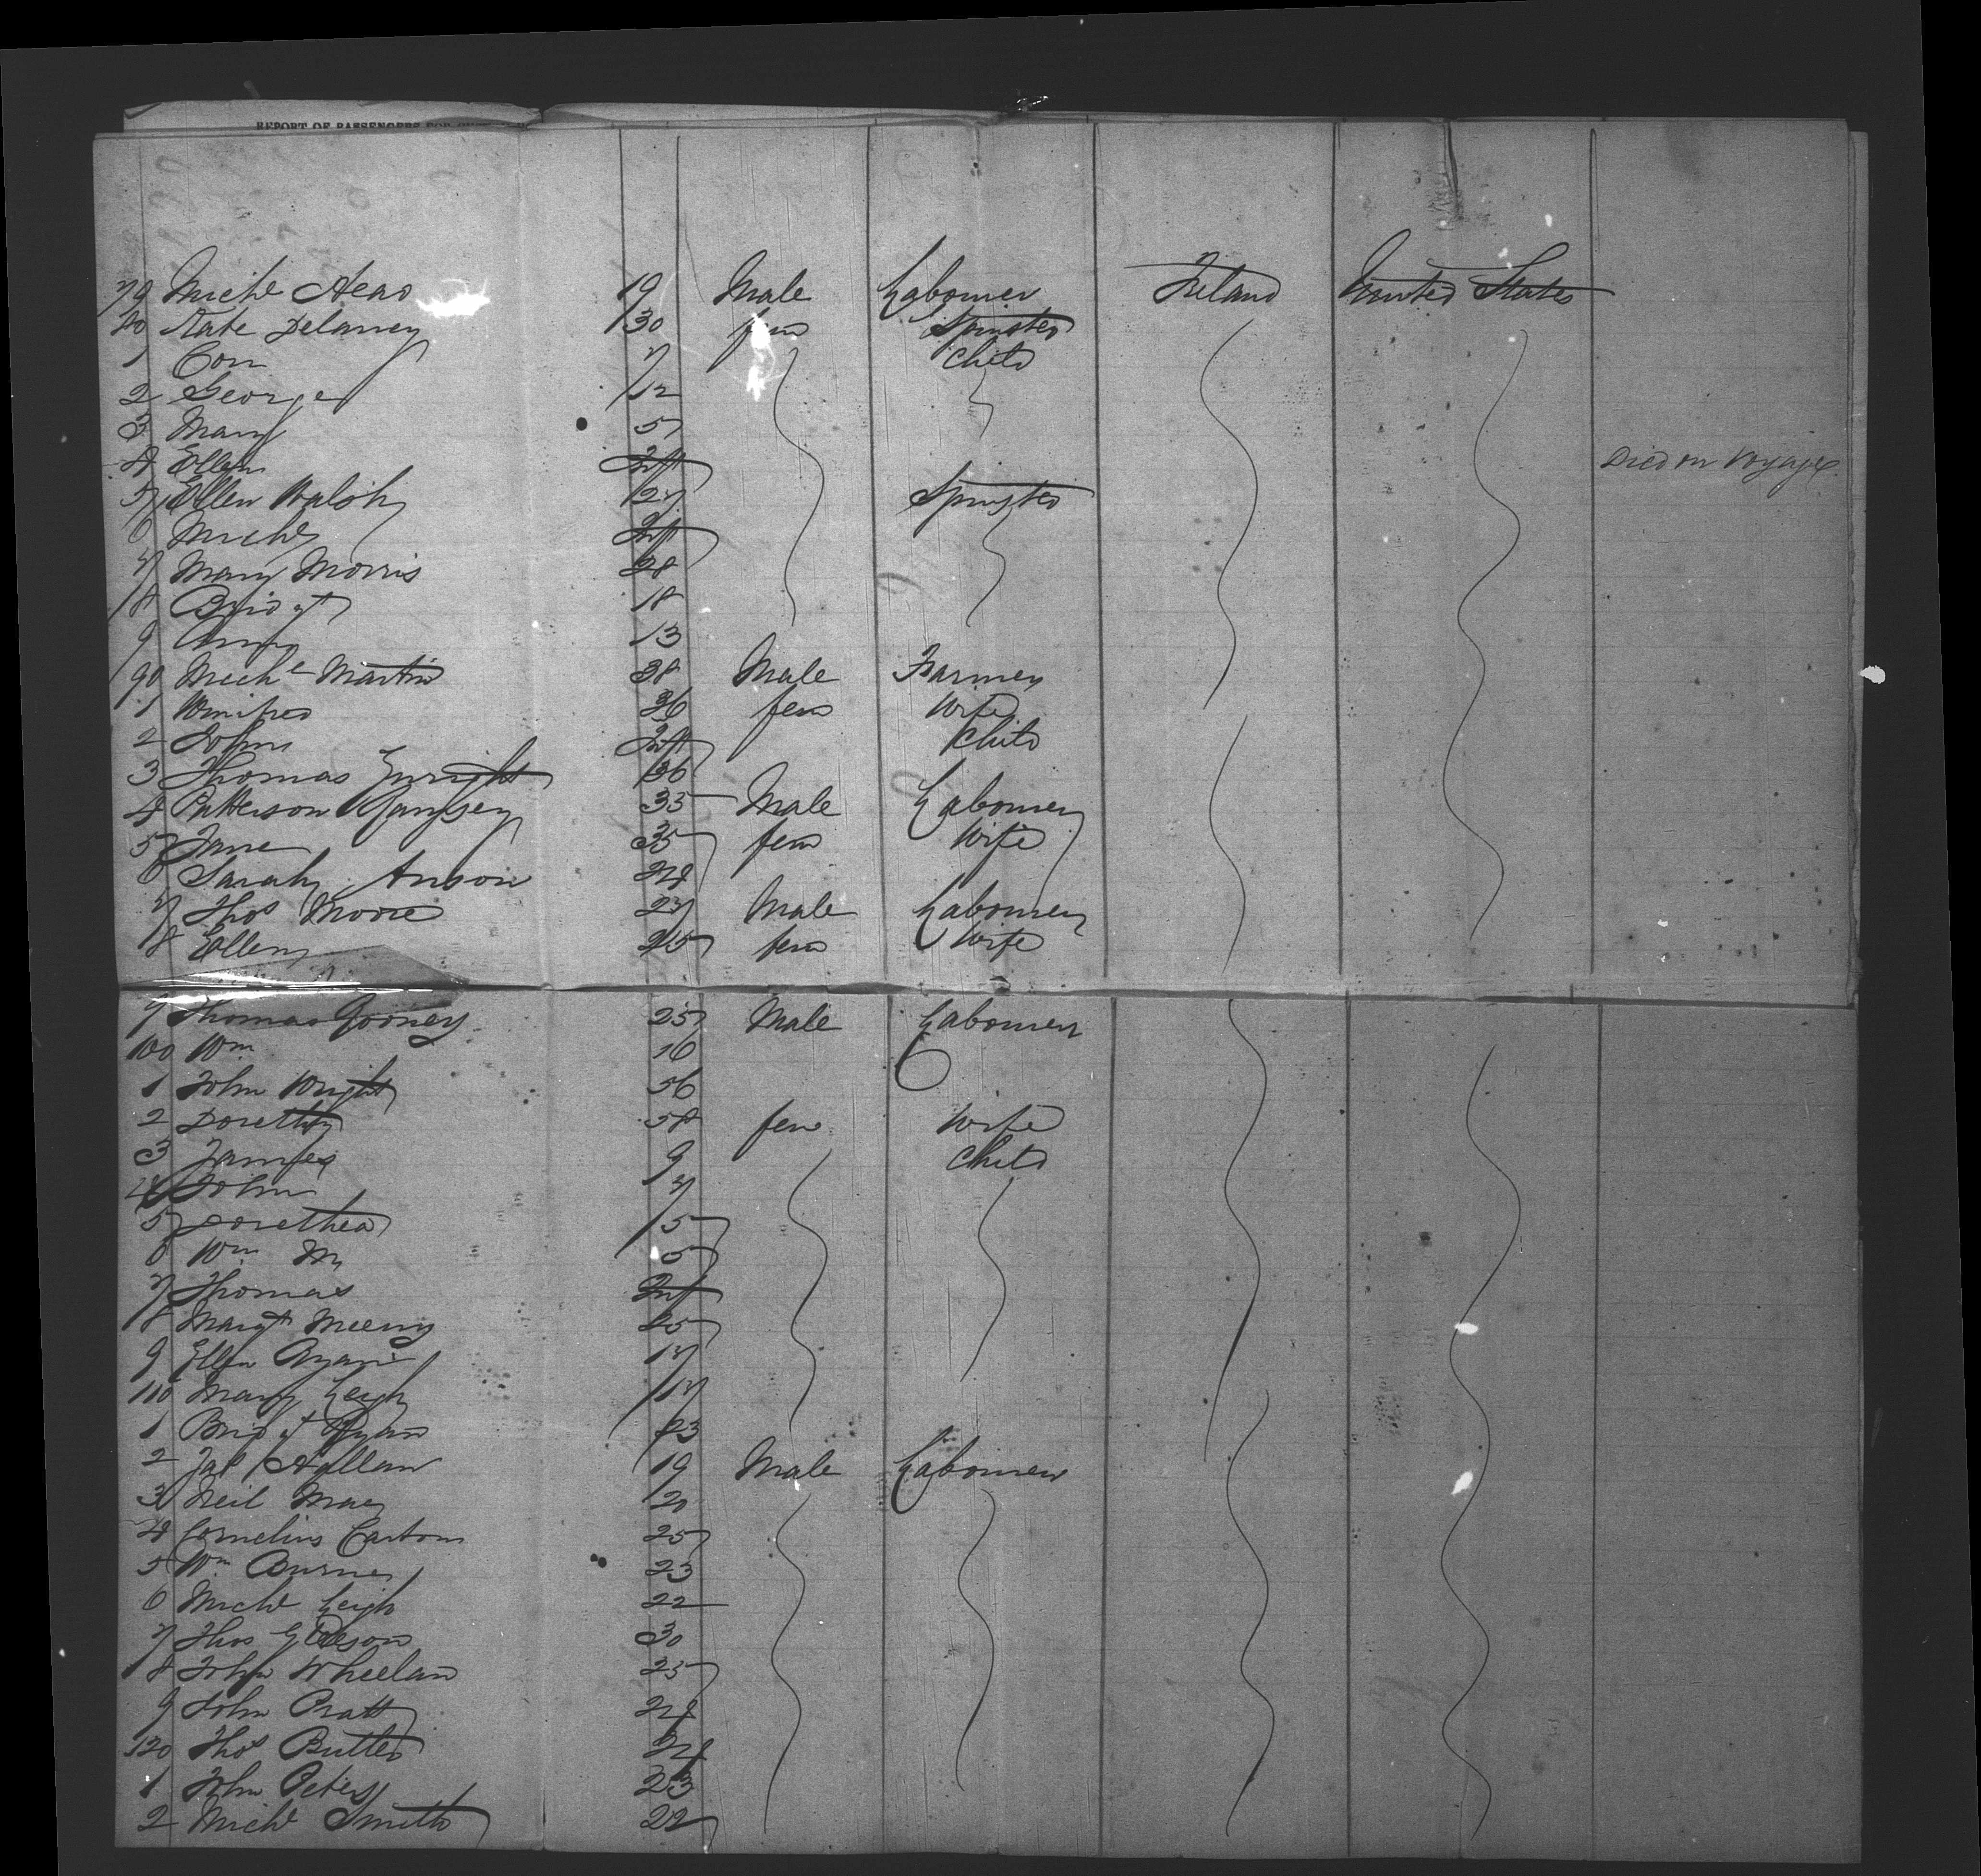 REPORT OF PASSENGERS
79 Michl 19 Male Labourer Ireland United States
80 Kate Delaney 30 fem Spinster
1 Con 7 Child
2 George 12
3 Mary 5
4 Ellen Inft Died on Voyage
5 Ellen Walsh 27 Spinster
6 Michl Inft
7 Mary Morris 28
8 Bridgt 18
9 Anny 13
90 Michl Martin 38 Male Farmer
1 Winifred 36 fem Wife
2 John Inft Child
3 Thomas Enright 36
4 Patterson Ramsey 35 Male Labourer
5 Jane 35 fem Wife
6 Sarah Anson 24
7 Thos Moore 27 Male Labourer
8 Ellen 25 fem Wife
9 Thomas Gooney 25 Male Labourer
100 Wm 16
1 John Wright 56
2 Doretty 58 fem Wife
3 James 9 Child
4 John 7
5 Dorethea 5
6 Wm M 5
7 Thomas Inf
8 Margt Meeny 25
9 Ellen Ryan 17
110 Mary Leigh 17
1 Bridgt Ryan 23
2 Jas 19 Male Labourer
3 Neil 20
4 Cornelius Carton 25
5 Wm 23
6 Michl Leigh 22
7 Thos Gleeson 30
8 John Wheelan 25
9 John Pratt 24
120 Thos Butler 24
1 John Peters 23
2 Michl Smith 22